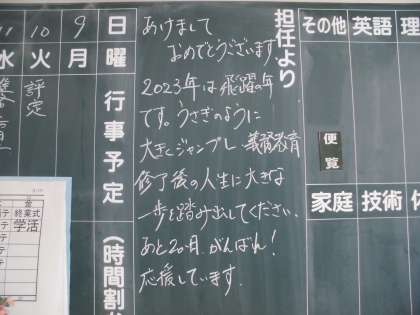 担任より
あけまして
おめでとうございます
2023年は飛躍の年
です。うさぎのように
大きくジャンプし、義務教育
修了後の人生に大きな
一歩を踏み出してください。
あと20日、がんばれ！
応援しています。
その他
英語
理
便覧
家庭
技術
体
日
曜
行事予定
(時間割
9
月
10
火
評定
11
水
金
終業式
学活
テ
テ
テ
テ